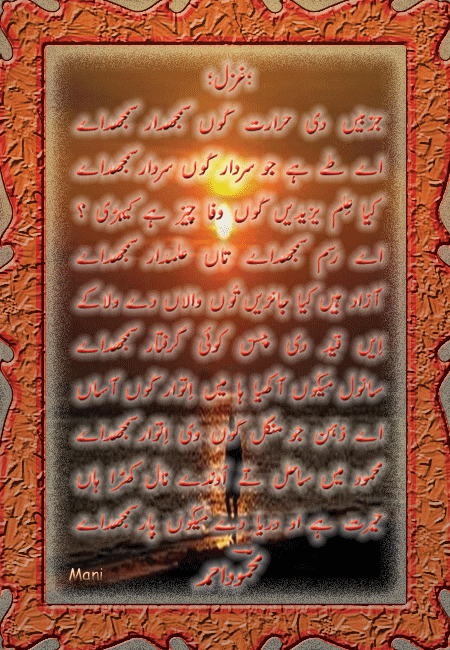 ؛غزل؛
جزبیں دی حرارت کوں سمجھدار سمجھداے
اے طے ہے جو سردار کوں سردار سمجھداے
کیا عِلم یزیدیں کوں وفا چیز ہے کیہڑی ؟
اے رسم سمجھداے تاں علمدار سمجھداے
آزاد ہیں کیا جانڑیں توں والاں دے ولاکے
ایں قید دی کوئی گرفتار سمجھداے
سانول میکوں آکھیا ہا میں اِتوار کوں آساں
اے ذہن جو منگل کوں وی اِتوار سمجھداے
محمود میں ساحل تے اوندے نال کھڑا ہاں
حیرت ہے او دریا دے میکوں پار سمجھداے
محمود احمد
Mani